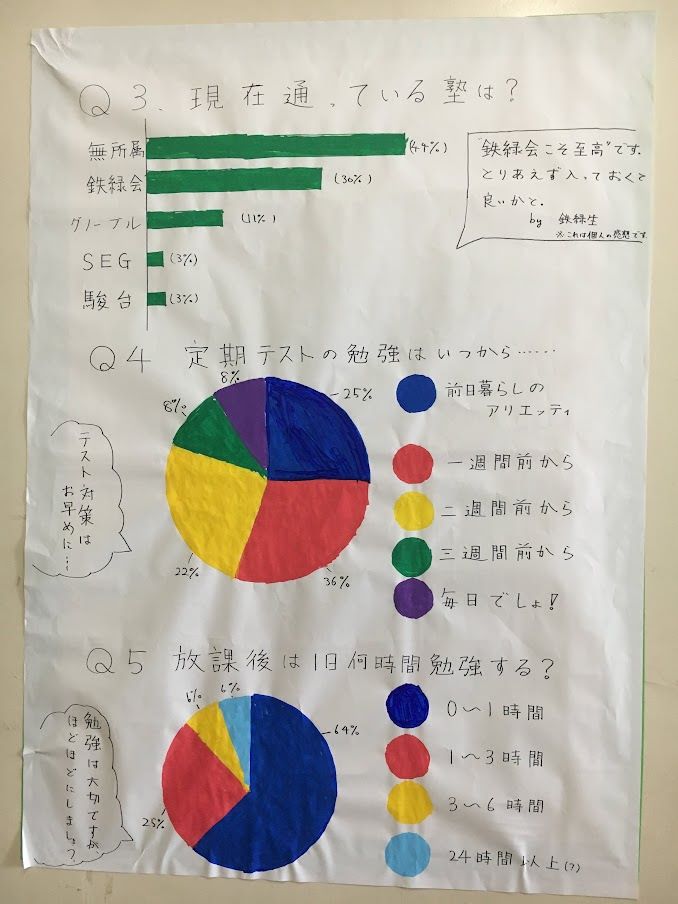 Q3. 現在通っている塾は?
無所属 (44%)
鉄緑会 (30%)
グノーブル (11%)
SEG (3%)
駿台 (3%)
"鉄緑会こそ至高"です。
とりあえず入っておくと
良いかと。
by 鉄緑生
※これは個人の感想です
Q4 定期テストの勉強はいつから……
8%
8%
25%
22%
36%
前日暮らしの
アリエッティ
一週間前から
二週間前から
三週間前から
毎日でしょ!
テスト対策は
お早めに…
Q5 放課後は1日何時間勉強する?
6%
6%
64%
25%
0〜1時間
1〜3時間
3〜6時間
24時間以上(?)
勉強は大切ですが
ほどほどにしましょ?